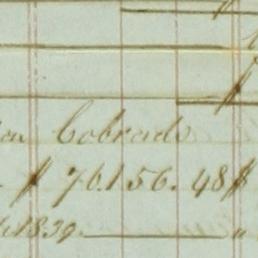 Cobrado
$ 76.156.48 $
1839. "